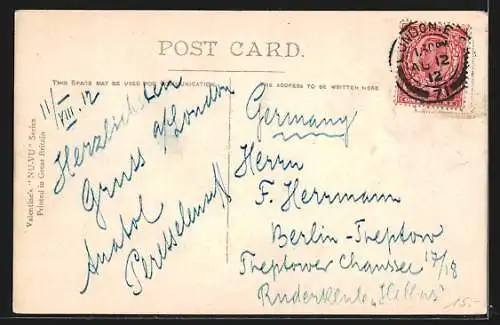 POST CARD.
THIS SPACE MAY BE USED FOR COMMUNICATION
THE ADDRESS TO BE WRITTEN HERE
LONDON. E
AU 12
12
71
11/VIII. 12
Herzlichsten
Gruss a/London
Anatol
Germany
Herrn
F. Herrmann
Berlin-Treptow
Treptower Chaussee 17/18
Ruderklub „Hellas"
15.-
Valentine's "NU-VU" Series
Printed in Great Britain